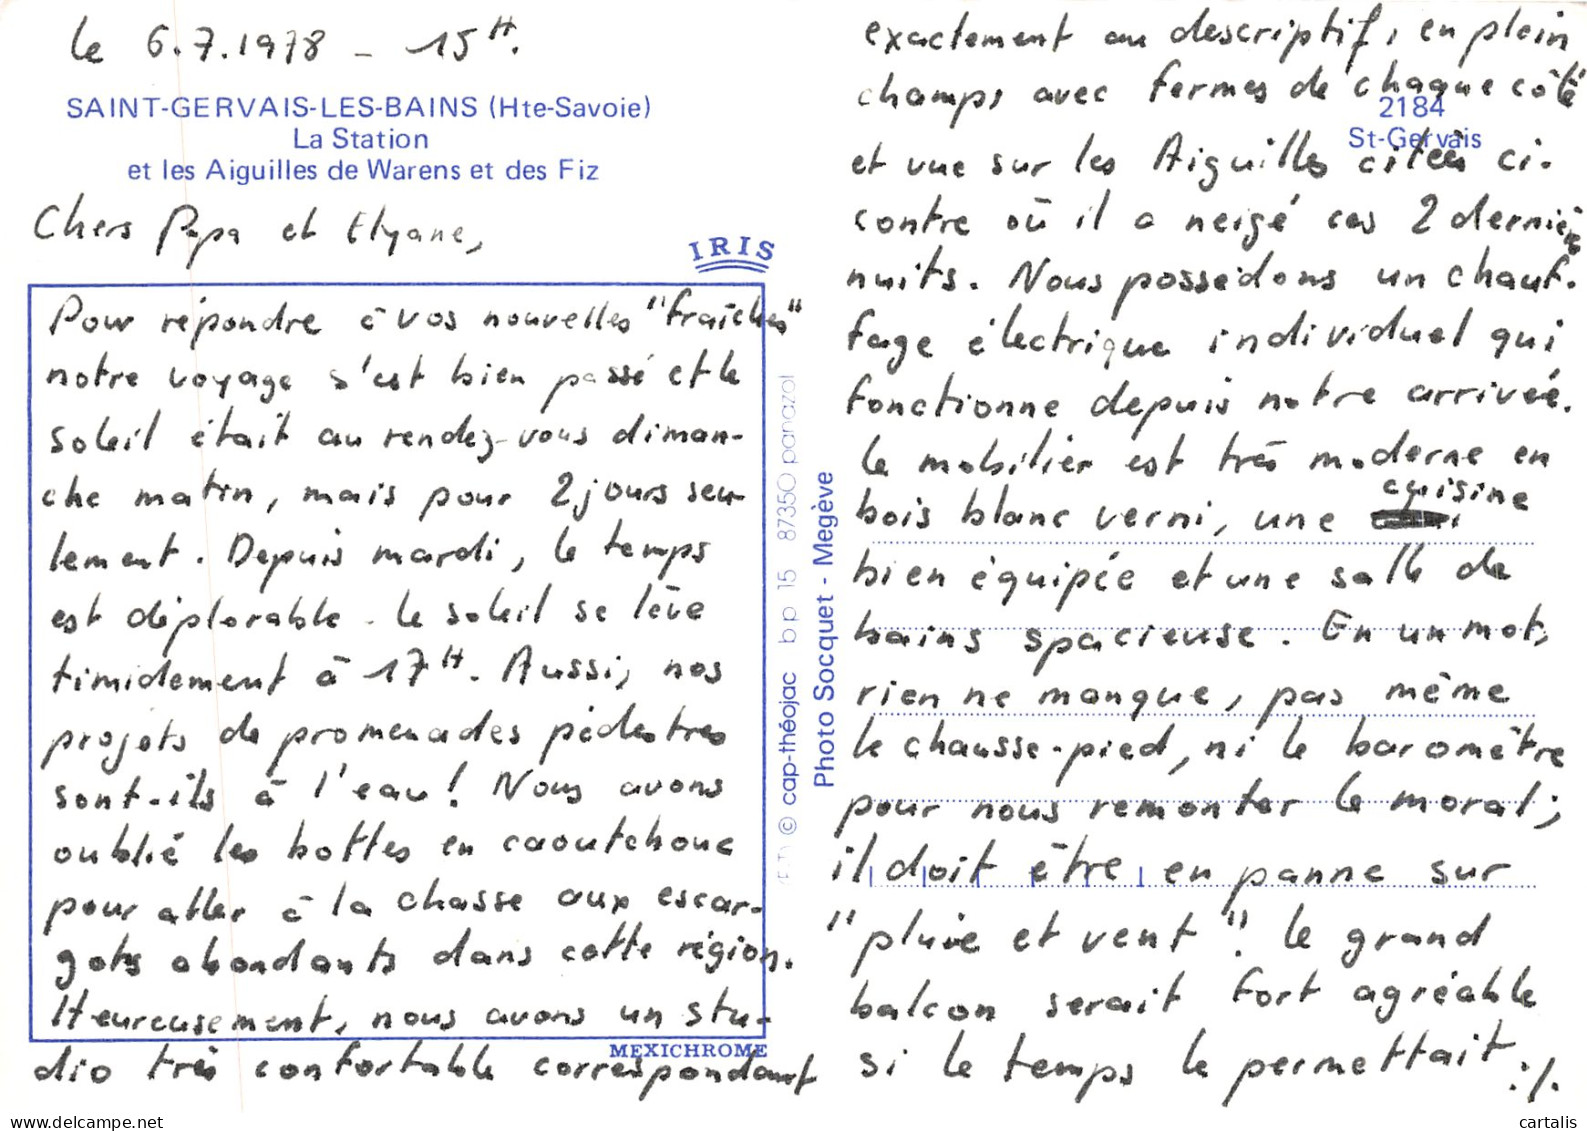 le 6.7.1978 - 15H.
SAINT-GERVAIS-LES-BAINS (Hte-Savoie)
La Station
et les Aiguilles de Warens et des Fiz
Chers Papa et Elyane,
IRIS
Pour répondre à vos nouvelles "fraîches"
notre voyage s'est bien passé et le
soleil était au rendez-vous diman-
che matin, mais pour 2 jours seu-
lement. Depuis mardi, le temps
est déplorable. Le soleil se lève
timidement à 17H. Aussi, nos
projets de promenades pédestres
sont-ils à l'eau! Nous avons
oublié les bottes en caoutchouc
pour aller à la chasse aux escar-
gots abondants dans cette région.
Heureusement, nous avons un stu-
dio très confortable correspondant
MEXICHROME
© cap-théojac bp 15 87350 panazol
Photo Socquet - Megève
2184
St-Gervais
exactement au descriptif, en plein
champs avec fermes de chaque côté
et vue sur les Aiguilles citées ci-
contre où il a neigé ces 2 dernières
nuits. Nous possédons un chauf-
fage électrique individuel qui
fonctionne depuis notre arrivée.
Le mobilier est très moderne en
bois blanc verni, une cuisine
bien équipée et une salle de
bains spacieuse. En un mot,
rien ne manque, pas même
le chausse-pied, ni le baromètre
pour nous remonter le moral;
il doit être en panne sur
"pluie et vent". Le grand
balcon serait fort agréable
si le temps le permettait ./.
delcampe.net
cartalis